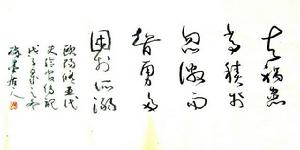 夫禍患
常積於
忽微而
智勇多
困於所溺
歐陽修五代
史伶官傳記
戊子